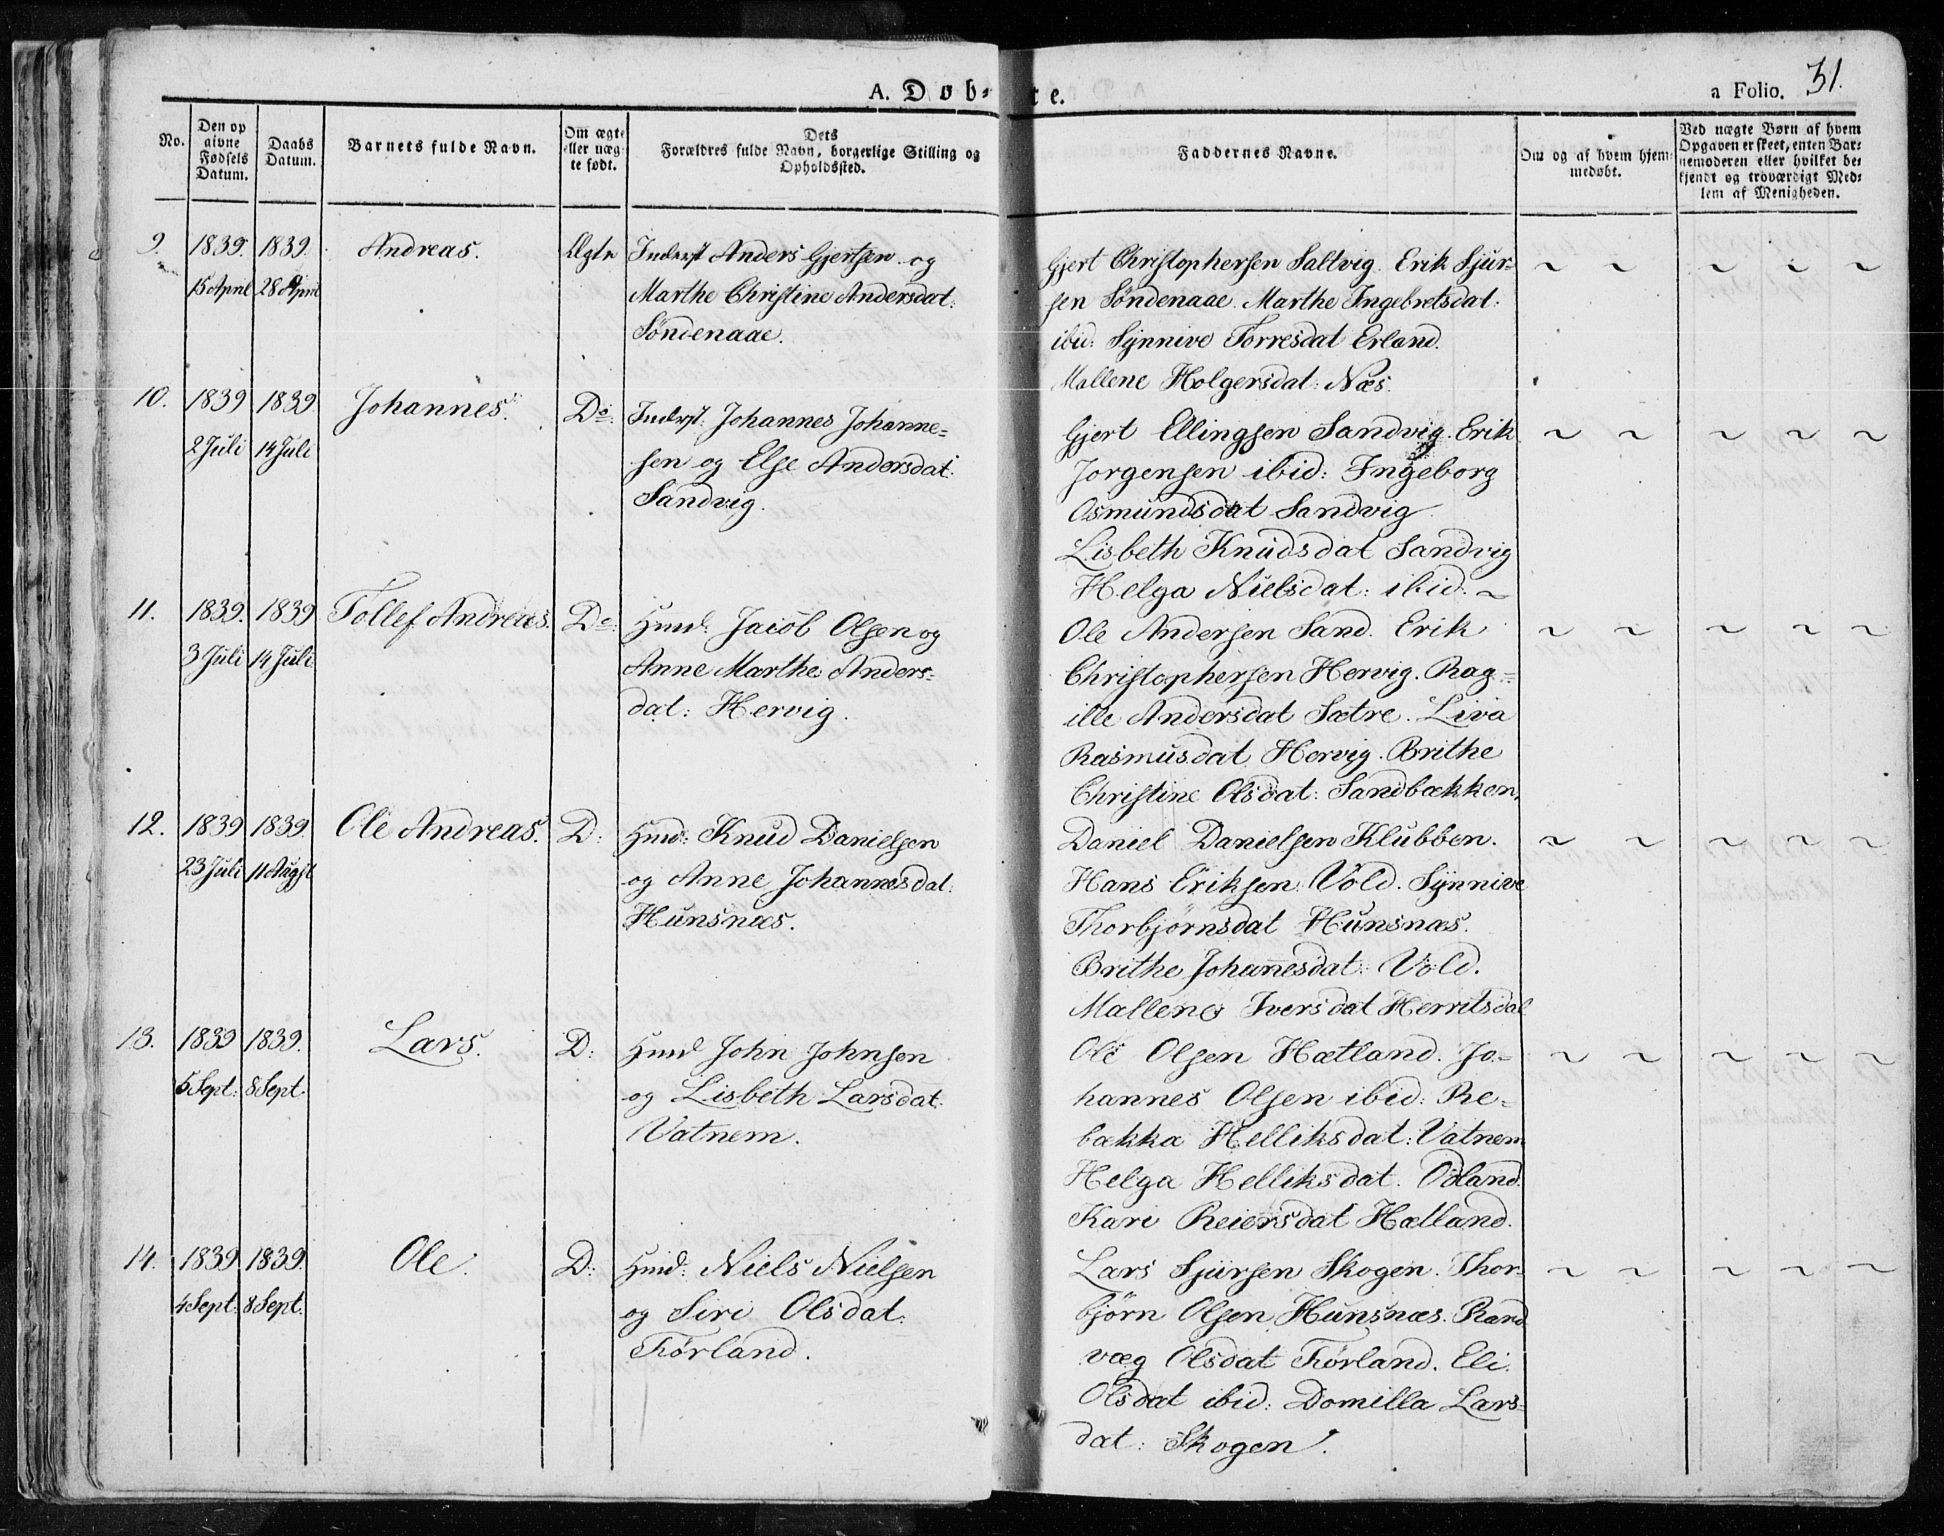 A. Døb-
te.
a Folio. 31.
No.
Den op
givne
Fødsels
Datum.
Daabs
Datum.
Barnets fulde Navn.
Om ægte
eller uæg
te født.
Dets
Forældres fulde Navn, borgerlige Stilling og
Opholdssted.
Faddernes Navne.
Om og af hvem hjem-
medøbt.
Ved uægte Børn af hvem
Opgaven er skeet, enten Bar-
nemoderen eller hvilket be-
kjendt og troværdigt Med-
lem af Menigheden.
9. 1839. 1839. Andreas. Ægte Inderst Anders Gjertsen og
15 April 28 April Marthe Christine Andersdat:
Søndenaae.
Gjert Christophersen Saltvig. Erik Sjur-
sen Søndenaae. Marthe Ingebretsdat:
ibid: Synnive Torresdat Erland.
Mallene Holgersdat: Næs.
10. 1839 1839. Johannes. Do: Inderst: Johannes Johanne-
2 Juli 14 Juli sen og Else Andersdat:
Sandvig.
Gjert Ellingsen Sandvig. Erik
Jorgensen ibid: Ingeborg
Osmundsdat Sandvig.
Lisbeth Knudsdat Sandvig
Helga Nielsdat: ibid. ~
11. 1839. 1839 Tollef Andreas. Do: Hmd: Jacob Olsen og
3 Juli 14 Juli Anne Marthe Anders-
dat: Hervig.
Ole Andersen Sand. Erik
Christophersen Hervig. Rag-
ille Andersdat Sætre. Liva
Rasmusdat Hervig. Brithe
Christine Olsdat: Sandbækken.
12. 1839 1839. Ole Andreas. D: Hmd: Knud Danielsen
23 Juli 11 August og Anne Johannesdat:
Hunsnæs.
Daniel Danielsen Klubben.
Hans Eriksen Vold. Synnive
Thorbjørnsdat Hunsnæs.
Brithe Johannesdat: Vold.
Mallene Iversdat Herritsdal
13. 1839 1839. Lars. D: Hmd John Johnsen
5 Sept: 8 Sept. og Lisbeth Larsdat.
Vatnem.
Ole Olsen Hætland. Jo-
hannes Olsen ibid: Re-
bækka Helliksdat: Vatnem
Helga Helliksdat. Odland.
Kari Reiersdat Hætland.
14. 1839 1839. Ole. D: Hmd: Niels Nielsen
4 Sept. 8 Sept. og Siri Olsdat:
Førland.
Lars Sjursen Skogen. Thor-
bjørn Olsen Hunsnæs. Rand
væg Olsdat Førland. Eli
Olsdat ibid: Domilla Lars-
dat: Skogen.